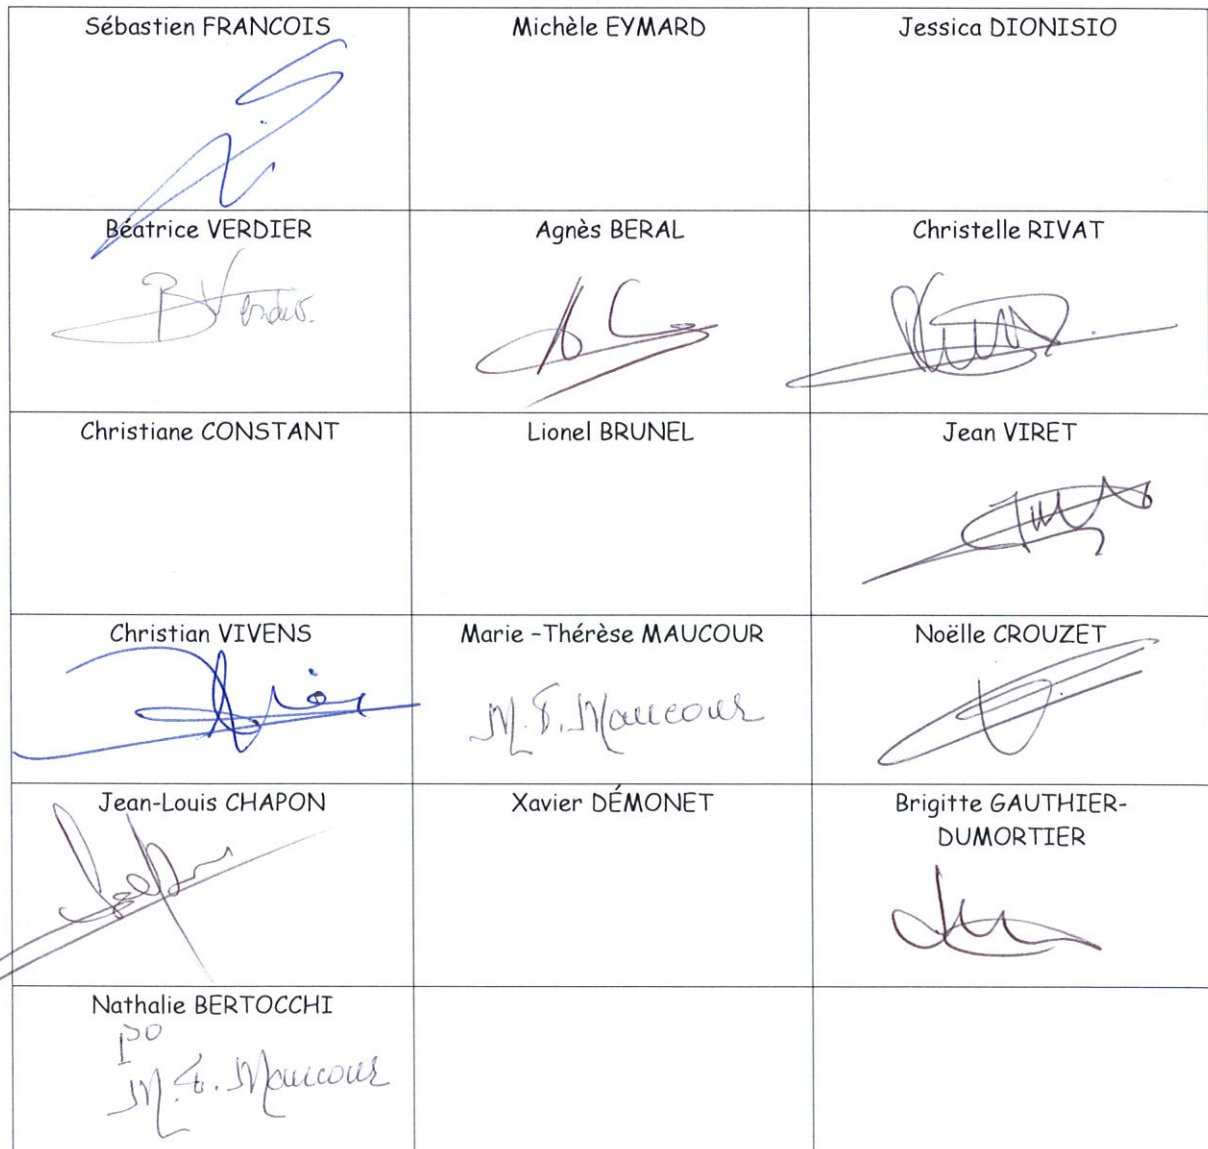 Sébastien FRANCOIS
Michèle EYMARD
Jessica DIONISIO
Béatrice VERDIER
Agnès BERAL
Christelle RIVAT
B Verdier.
Christiane CONSTANT
Lionel BRUNEL
Jean VIRET
Christian VIVENS
Marie -Thérèse MAUCOUR
Noëlle CROUZET
M. T. Maucour
Jean-Louis CHAPON
Xavier DÉMONET
Brigitte GAUTHIER-
DUMORTIER
Nathalie BERTOCCHI
PO
M. T. Maucour